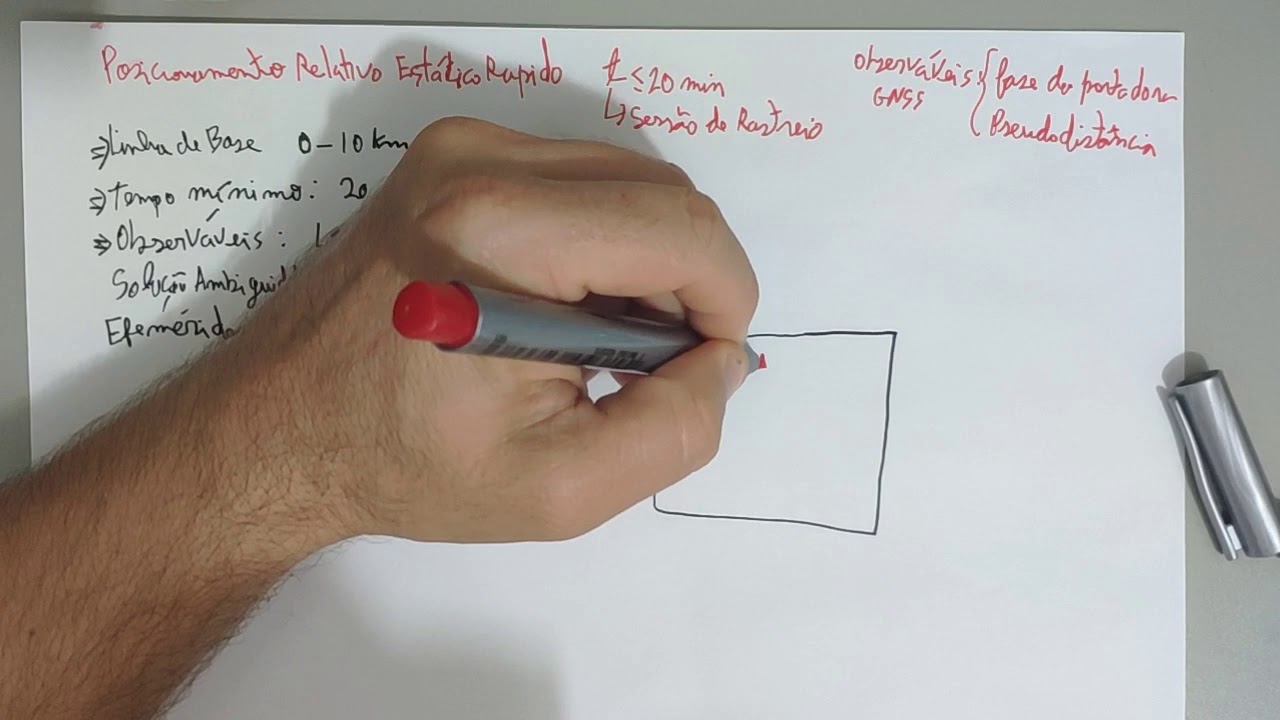 Posicionamento Relativo Estático Rapido
t ≤ 20 min
↳ Sessão de Rastreio
Observáveis
GNSS
{ fase da portadora
Pseudodistância
⇒ Linha de Base 0-10 km
⇒ Tempo mínimo: 20
⇒ Observáveis :
Solução